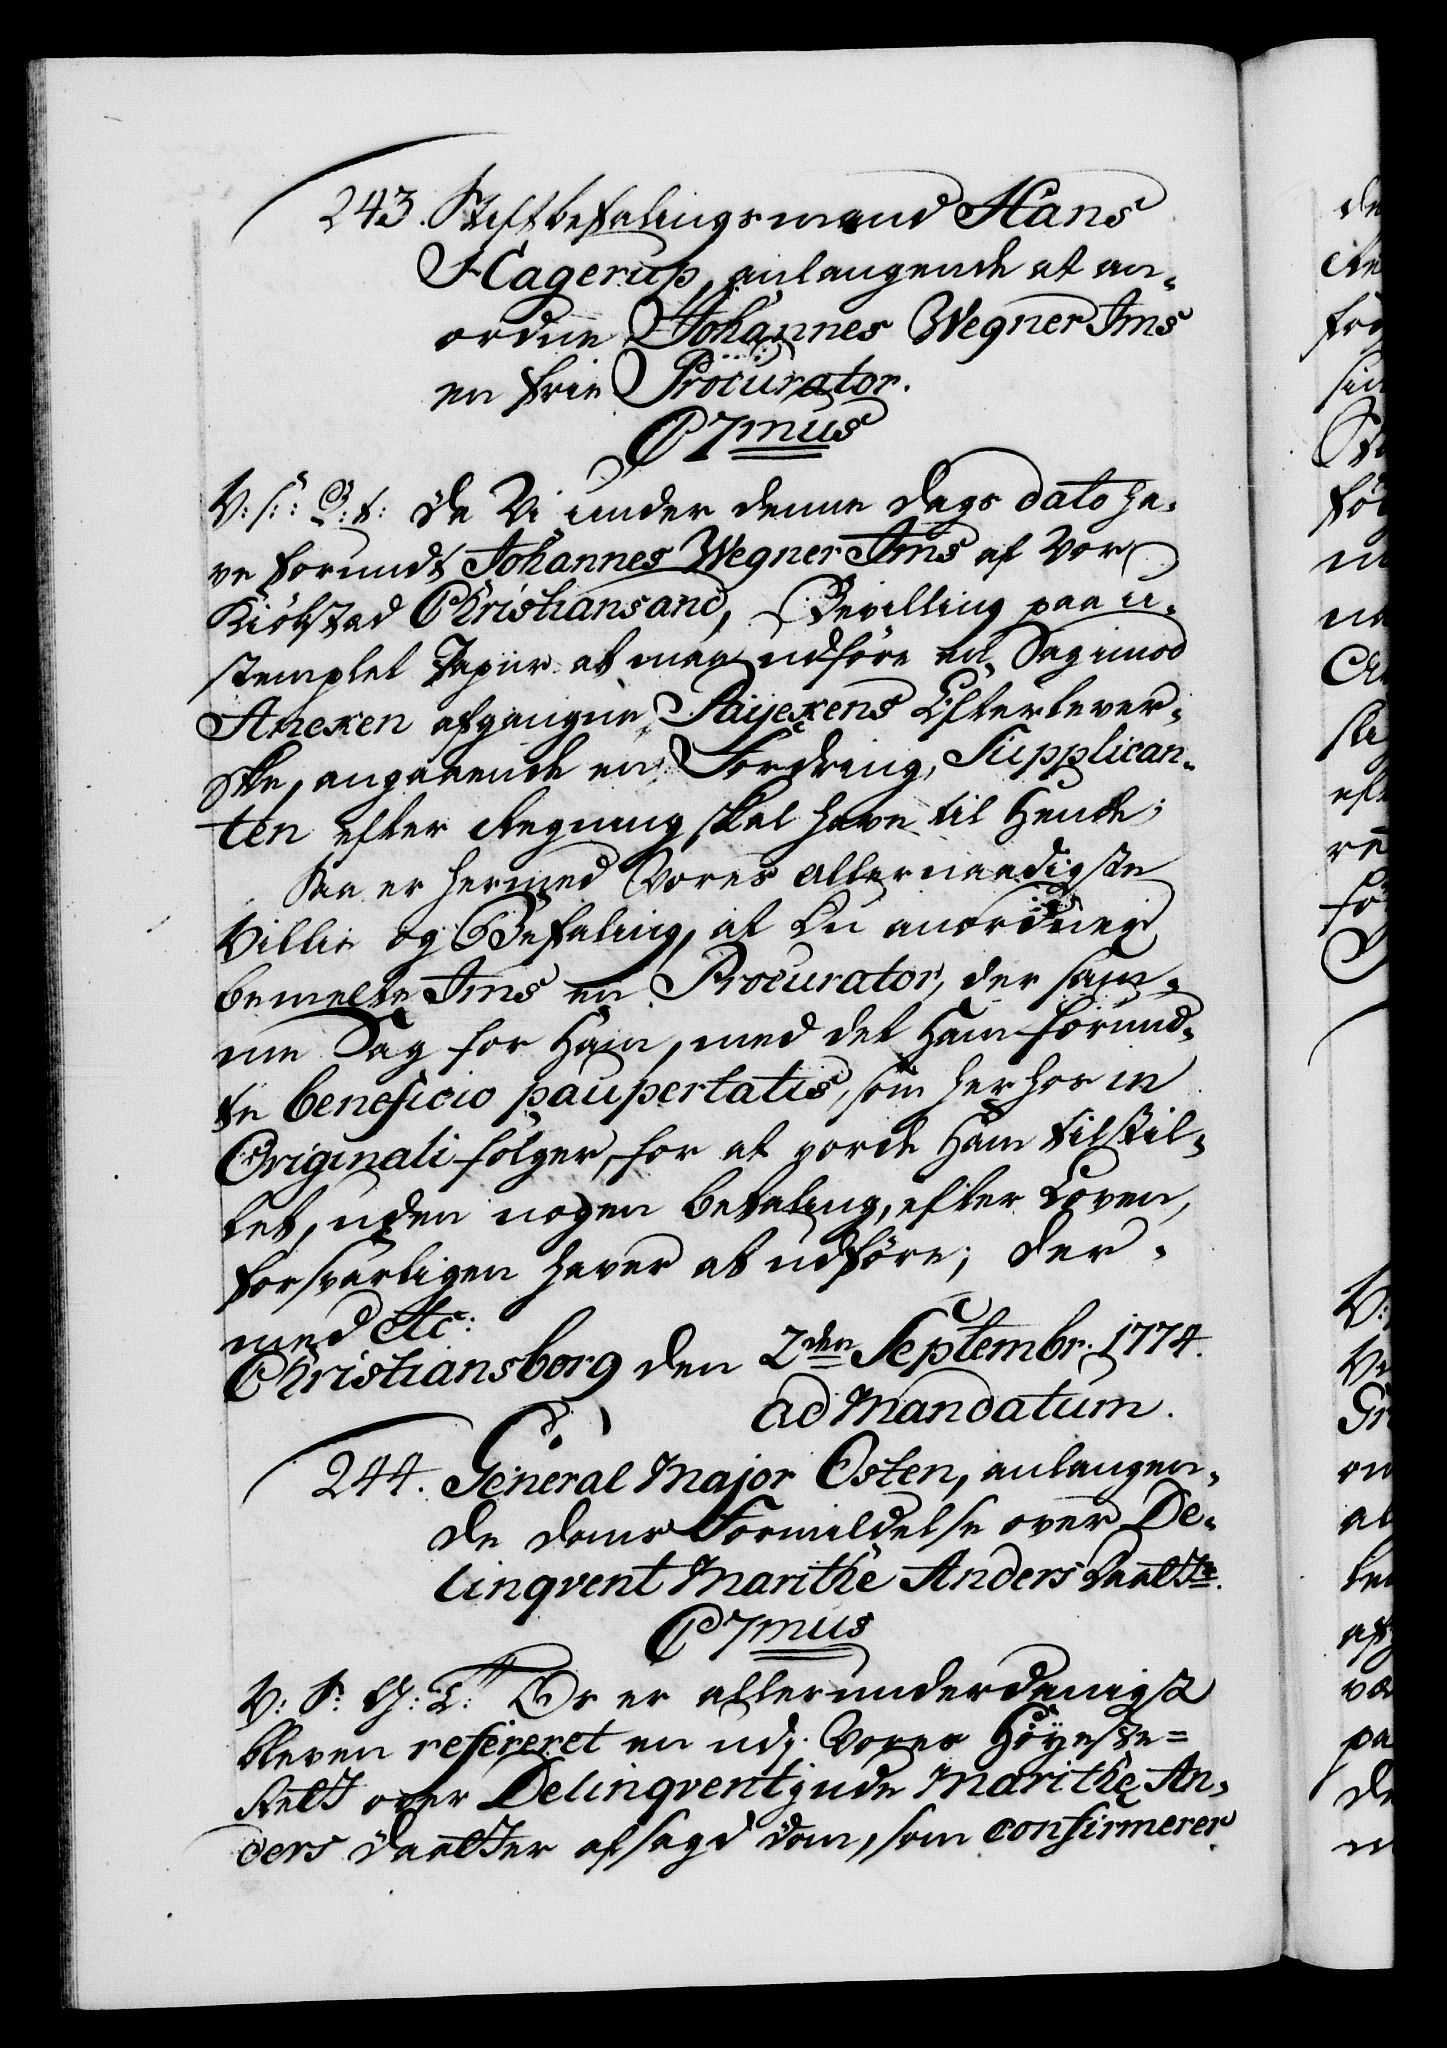 243. Stiftbefalingsmand Hans
Hagerup, anlangende at an-
ordne Johannes Wegner Ims
en frie Procurator.
C7mus
V: s: G: t: Da Vi under denne Dags dato ha-
ve forundt Johannes Wegner Ims af Vor
Kiöbstad Christiansand, Bevilling paa u-
stemplet Papiir at maa udföre en Sag imod
Aneken afgangne Paijekens Efterlever-
ske, angaaende en Fordring, Supplican-
ten efter Regning skal have til Hende;
Saa er hermed Vores allernaadigste
Villie og Befaling, at Du anordner
bemelte Ims en Procurator, der sam-
me Sag for Ham, med det Ham forund-
te beneficio paupertatis, som herhos in
Originali fölger, for at vorde Ham tilstil-
let, uden nogen betaling, efter Loven,
forsvarligen haver at udföre; Der-
med etc:
Christiansborg den 2den Septembr. 1774.
ad Mandatum.
244. General Major Osten, anlangen-
de doms Formildelse over De-
linqvent Marithe Anders Daatter.
C7mus
V: S: G: T: Os er allerunderdanigst
bleven refereret en udj Vores Höyeste=
Rett over Delinqventjnde Marithe An-
ders Daatter afsagd dom, som confirmerer